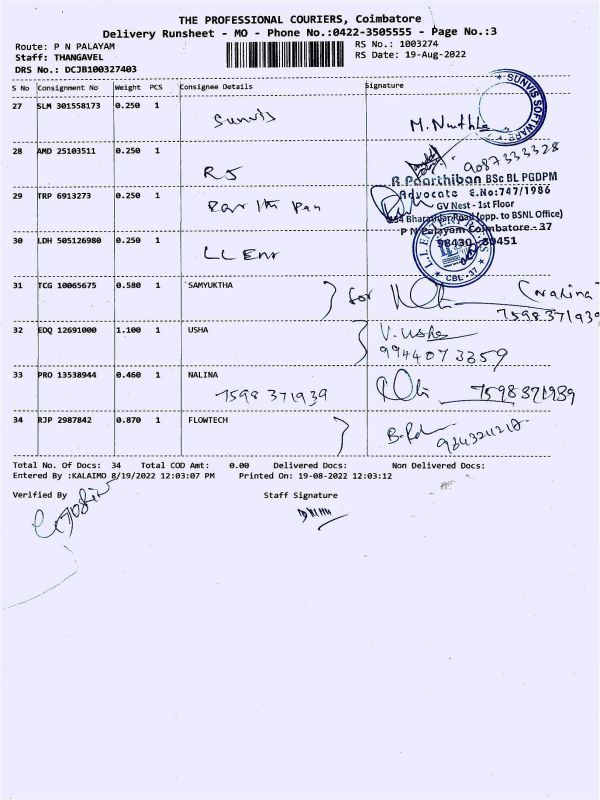 THE PROFESSIONAL COURIERS, Coimbatore
Delivery Runsheet - MO - Phone No.:0422-3505555 - Page No.:3
Route: P N PALAYAM
RS No.: 1003274
Staff: THANGAVEL
RS Date: 19-Aug-2022
DRS No.: DCJB100327403
S No Consignment No Weight PCS Consignee Details Signature
27 SLM 301558173 0.250 1 Sunvis
SUNVIS SOFTWARE
28 AMD 25103511 0.250 1 RS 9087333328
R.Paarthiban BSc BL PGDPM
29 TRP 6913273 0.250 1
Advocate E.No:747/1986
GV Nest - 1st Floor
Bharathiar Road (opp. to BSNL Office)
P N Palayam Coimbatore - 37
30 LDH 505126980 0.250 1 LL Enr
98430 - 80451
CBE-37
31 TCG 10065675 0.580 1 SAMYUKTHA for (Nalina)
7598371939
32 EDQ 12691000 1.100 1 USHA V. Usha
9944073359
33 PRO 13538944 0.460 1 NALINA
7598 371939 7598371939
34 RJP 2987842 0.870 1 FLOWTECH
Total No. Of Docs: 34 Total COD Amt: 0.00 Delivered Docs: Non Delivered Docs:
Entered By :KALAIMO 8/19/2022 12:03:07 PM Printed On: 19-08-2022 12:03:12
Verified By Staff Signature